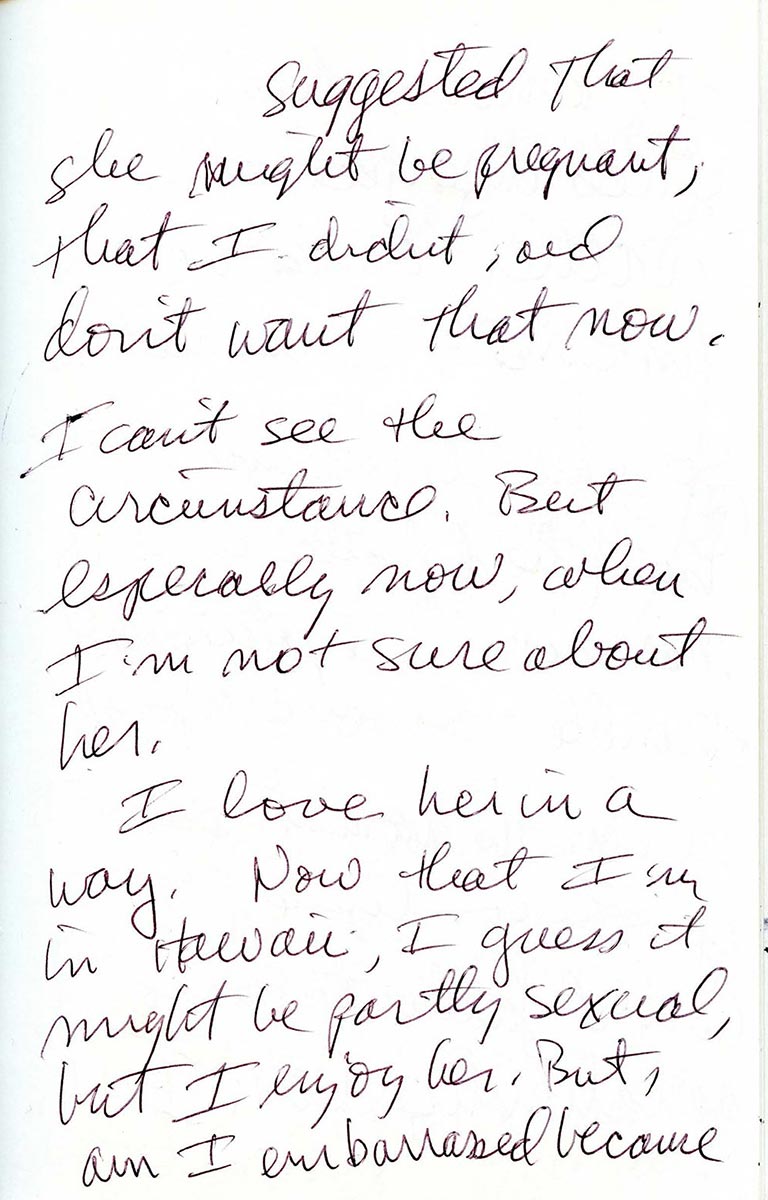 Suggested that
she might be pregnant,
that I didn't, and
don't want that now.
I can't see the
circumstance. But
especially now, when
I'm not sure about
her.
I love her in a
way. Now that I'm
in Hawaii, I guess it
might be partly sexual,
but I enjoy her. But,
am I embarrased because